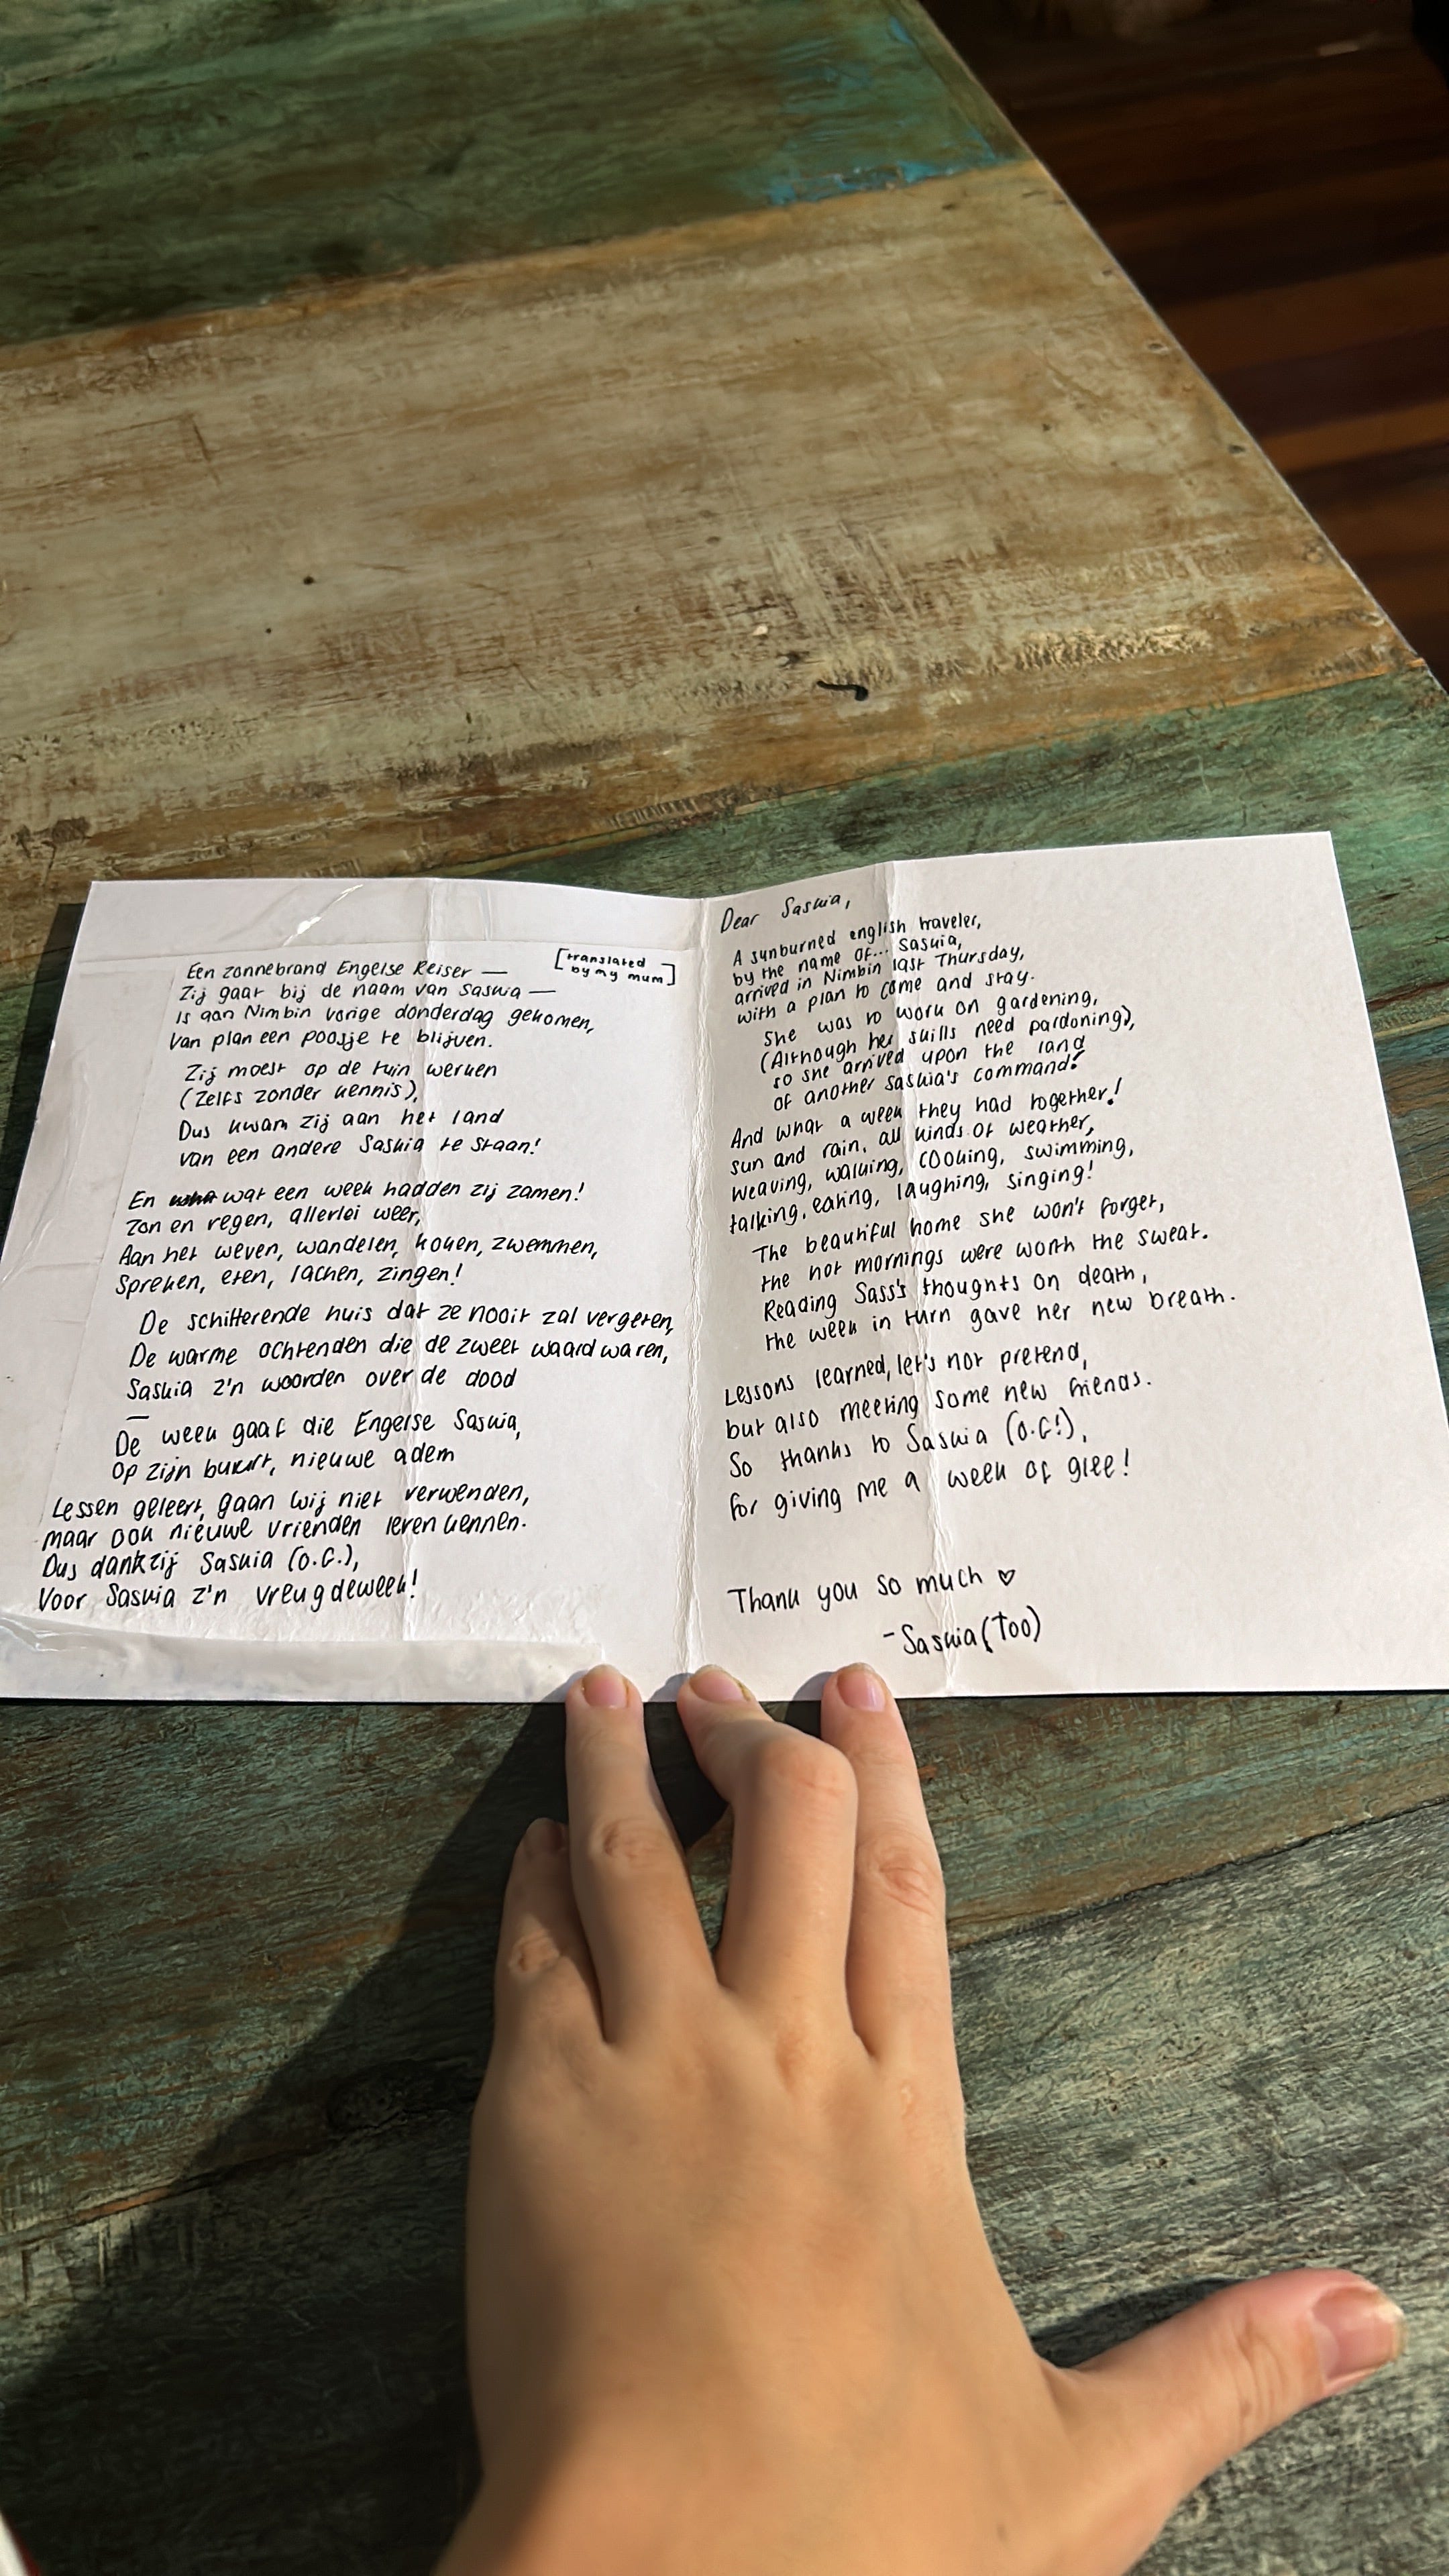 Een zonnebrand Engelse Reiser —
[translated
by my mum]
Zij gaat bij de naam van Saskia —
Is aan Nimbin vorige donderdag gekomen,
Van plan een poosje te blijven.
Zij moest op de tuin werken
(Zelfs zonder kennis),
Dus kwam zij aan het land
van een andere Saskia te staan!
En wat een week hadden zij zamen!
Zon en regen, allerlei weer,
Aan het weven, wandelen, koken, zwemmen,
Spreken, eten, lachen, zingen!
De schitterende huis dat ze nooit zal vergeten,
De warme ochtenden die de zweet waard waren,
Saskia z'n woorden over de dood
—
De week gaaf die Engelse Saskia,
Op zijn buurt, nieuwe adem
Lessen geleert, gaan wij niet verwenden,
maar ook nieuwe vrienden leren kennen.
Dus dankzij Saskia (O.G.),
Voor Saskia z'n vreugdeweek!
Dear Saskia,
A sunburned english traveler,
by the name of... Saskia,
arrived in Nimbin last Thursday,
with a plan to come and stay.
She was to work on gardening,
(Although her skills need pardoning),
so she arrived upon the land
of another Saskia's command!
And what a week they had together!
sun and rain, all kinds of weather,
weaving, walking, cooking, swimming,
talking, eating, laughing, singing!
The beautiful home she won't forget,
the hot mornings were worth the sweat.
Reading Sass's thoughts on death,
the week in turn gave her new breath.
Lessons learned, let's not pretend,
but also meeting some new friends.
So thanks to Saskia (O.G!),
for giving me a week of glee!
Thank you so much ♡
-Saskia (Too)